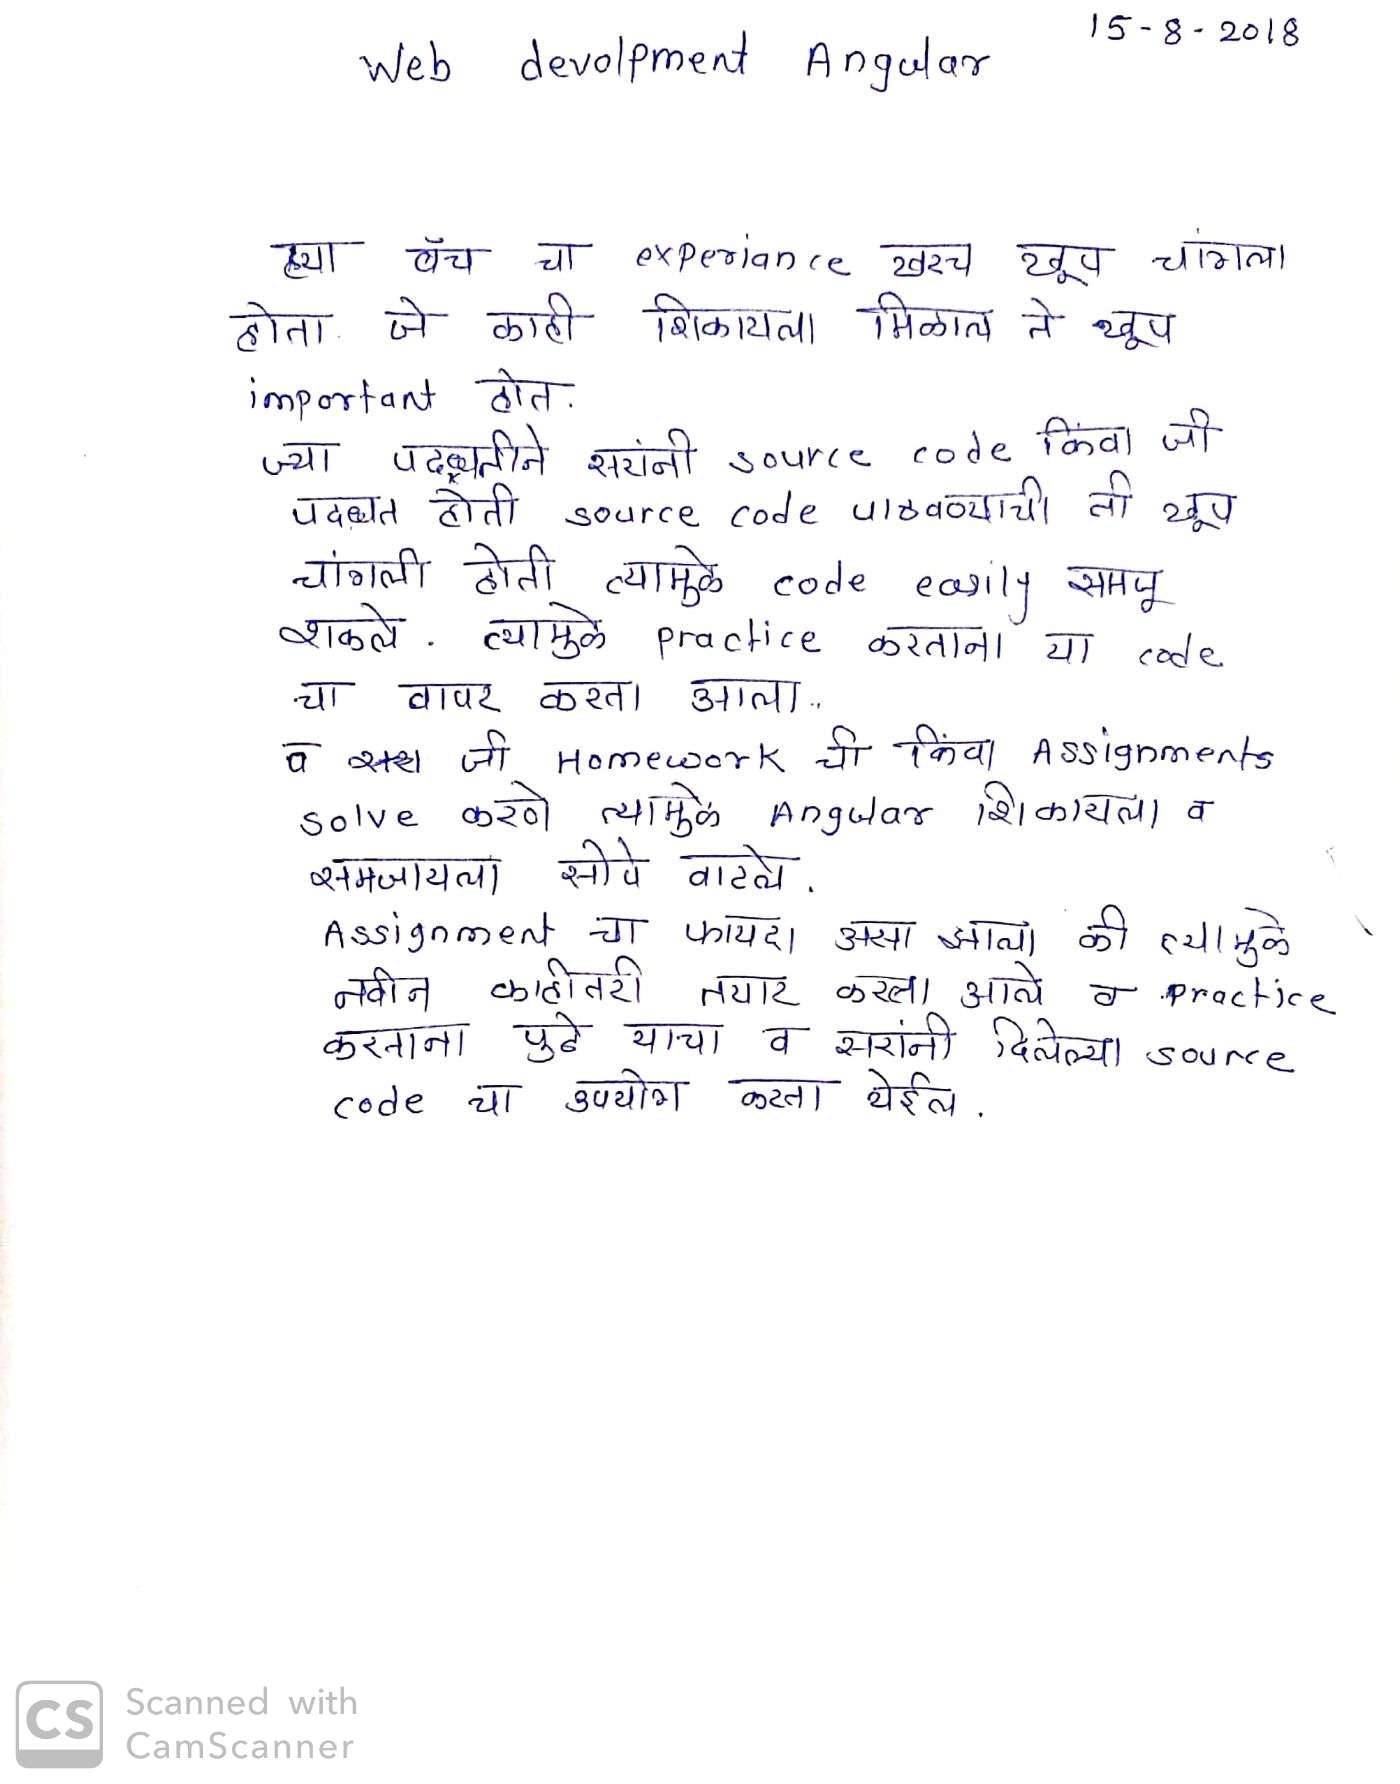 15-8-2018
Web devolpment Angular
ह्या बॅच चा experiance खरच खूप चांगला
होता. जे काही शिकायला मिळाल ते खूप
important होत.
ज्या पदध्यतीने सरांनी source code किंवा जी
पदध्यत होती source code पाठवण्याची ती खूप
चांगली होती त्यामुळे code easily समजू
शकले. त्यामुळे practice करताना या code
चा वापर करता आला..
व जी Homework ची किंवा Assignments
solve करणे त्यामुळे Angular शिकायला व
समजायला सोपे वाटले.
Assignment चा फायदा असा झाला की त्यामुळे
नवीन काहीतरी तयार करता आले व practice
करताना पुढे याचा व सरांनी दिलेल्या source
code चा उपयोग करता येईल.
CS Scanned with
CamScanner